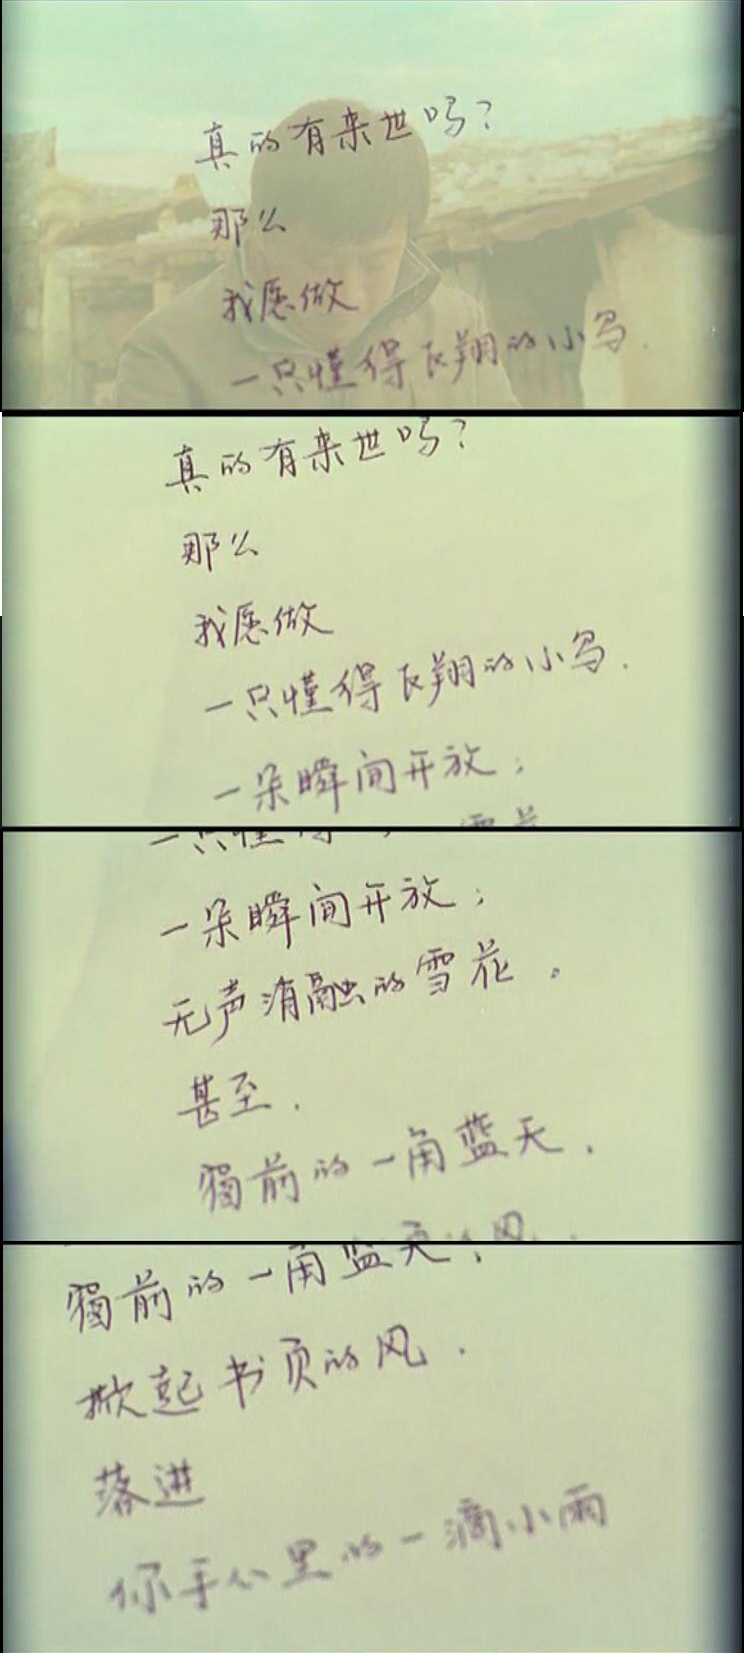 真的有来世吗？
那么
我愿做
一只懂得飞翔的小鸟.
真的有来世吗？
那么
我愿做
一只懂得飞翔的小鸟.
一朵瞬间开放；
一只懂得
一朵瞬间开放；
无声消融的雪花。
甚至.
窗前的一角蓝天.
窗前的一角蓝天.
掀起书页的风.
落进
你手心里的一滴小雨